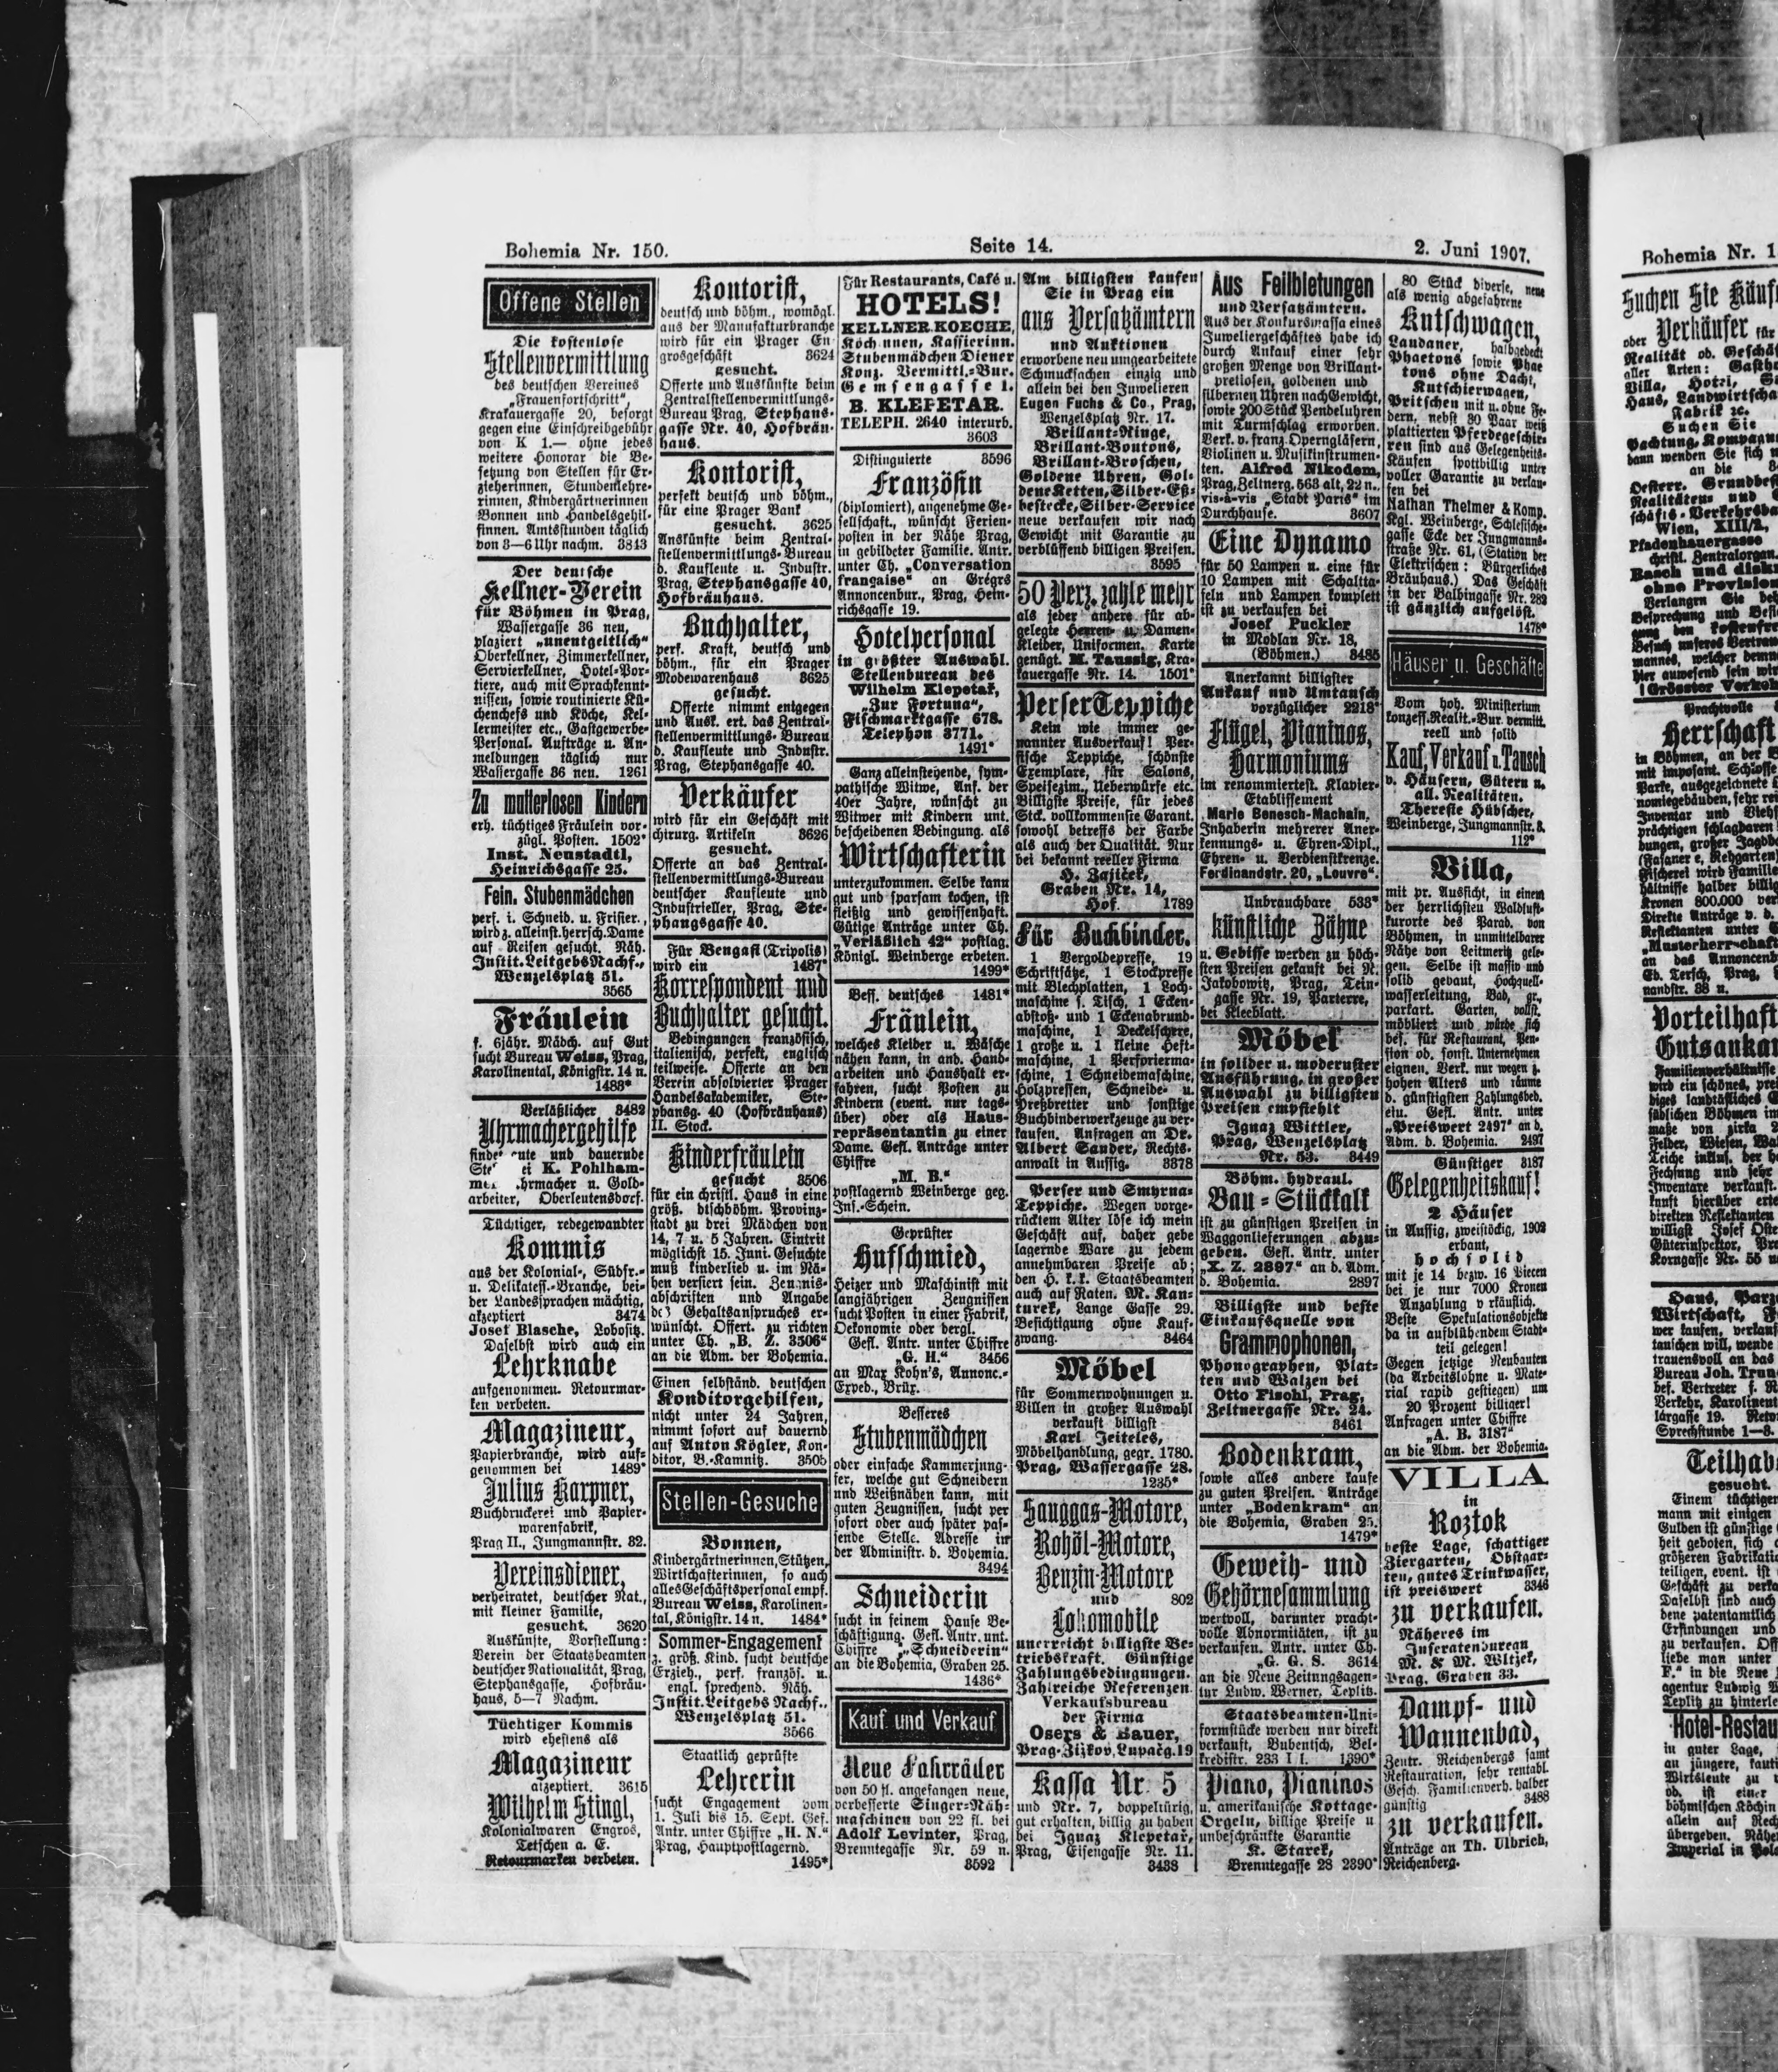 Bohemia Nr. 150.
Seite 14.
2. Juni 1907.
Offene Stellen
Die kostenlose
Stellenvermittlung
des deutschen Vereines
„Frauenfortschritt“,
Krakauergasse 20, besorgt
gegen eine Einschreibgebühr
von K 1.— ohne jedes
weitere Honorar die Be-
setzung von Stellen für Er-
zieherinnen, Stundenlehre-
rinnen, Kindergärtnerinnen
Bonnen und Handelsgehil-
finnen. Amtsstunden täglich
von 3—6 Uhr nachm. 3843
Der deutsche
Kellner-Verein
für Böhmen in Prag,
Wassergasse 36 neu,
plaziert „unentgeltlich“
Oberkellner, Zimmerkellner,
Servierkellner, Hotel-Por-
tiere, auch mit Sprachkennt-
nissen, sowie routinierte Kü-
chenchefs und Köche, Kel-
lermeister etc., Gastgewerbe-
Personal. Aufträge u. An-
meldungen täglich nur
Wassergasse 36 neu. 1261
Zu mutterlosen Kindern
erh. tüchtiges Fräulein vor-
zügl. Posten. 1502*
Inst. Neustadtl,
Heinrichsgasse 25.
Fein. Stubenmädchen
perf. i. Schneid. u. Frisier.,
wird z. alleinst. herrsch. Dame
auf Reisen gesucht. Näh.
Instit. Leitgebs Nachf.,
Wenzelsplatz 51.
3565
Fräulein
f. 6jähr. Mädch. auf Gut
sucht Bureau Weiss, Prag,
Karolinental, Königstr. 14 n.
1483*
Verläßlicher 3482
Uhrmachergehilfe
gute und dauernde
K. Pohlham-
Uhrmacher u. Gold-
arbeiter, Oberleutensdorf.
Tüchtiger, redegewandter
Kommis
aus der Kolonial-, Südfr.-
u. Delikatess.-Branche, bei-
der Landessprachen mächtig,
akzeptiert 3474
Josef Blasche, Lobositz.
Daselbst wird auch ein
Lehrknabe
aufgenommen. Retourmar-
ken verbeten.
Magazineur,
Papierbranche, wird auf-
genommen bei 1489*
Julius Karpner,
Buchdruckerei und Papier-
warenfabrik,
Prag II., Jungmannstr. 32.
Vereinsdiener,
verheiratet, deutscher Nat.,
mit kleiner Familie,
gesucht. 3620
Auskünfte, Vorstellung:
Verein der Staatsbeamten
deutscher Nationalität, Prag,
Stephansgasse, Hofbräu-
haus, 5—7 Nachm.
Tüchtiger Kommis
wird ehestens als
Magazineur
akzeptiert. 3615
Wilhelm Stingl,
Kolonialwaren Engros,
Tetschen a. E.
Retourmarken verbeten.
Kontorist,
deutsch und böhm., womögl.
aus der Manufakturbranche
wird für ein Prager En
grosgeschäft 3624
gesucht.
Offerte und Auskünfte beim
Zentralstellenvermittlungs-
Bureau Prag, Stephans-
gasse Nr. 40, Hofbräu-
haus.
Kontorist,
perfekt deutsch und böhm.,
für eine Prager Bank
gesucht. 3625
Auskünfte beim Zentral-
stellenvermittlungs-Bureau
d. Kaufleute u. Industr.
Prag, Stephansgasse 40,
Hofbräuhaus.
Buchhalter,
perf. Kraft, deutsch und
böhm., für ein Prager
Modewarenhaus 3625
gesucht.
Offerte nimmt entgegen
und Ausk. ert. das Zentral-
stellenvermittlungs-Bureau
d. Kaufleute und Industr.
Prag, Stephansgasse 40.
Verkäufer
wird für ein Geschäft mit
chirurg. Artikeln 3626
gesucht.
Offerte an das Zentral-
stellenvermittlungs-Bureau
deutscher Kaufleute und
Industrieller, Prag, Ste-
phansgasse 40.
Für Bengasi (Tripolis)
wird ein 1487*
Korrespondent und
Buchhalter gesucht.
Bedingungen französisch,
italienisch, perfekt, englisch
teilweise. Offerte an den
Verein absolvierter Prager
Handelsakademiker, Ste-
phansg. 40 (Hofbräuhaus)
II. Stock.
Kinderfräulein
gesucht 3506
für ein christl. Haus in eine
größ. dtschböhm. Provinz-
stadt zu drei Mädchen von
14, 7 u. 5 Jahren. Eintritt
möglichst 15. Juni. Gesuchte
muß kinderlieb u. im Nä-
hen versiert sein. Zeugnis-
abschriften und Angabe
des Gehaltsanspruches er-
wünscht. Offert. zu richten
unter Ch. „B. Z. 3506“
an die Adm. der Bohemia.
Einen selbständ. deutschen
Konditorgehilfen,
nicht unter 24 Jahren,
nimmt sofort auf dauernd
auf Anton Kögler, Kon-
ditor, B.-Kamnitz. 3505
Stellen-Gesuche
Bonnen,
Kindergärtnerinnen, Stützen,
Wirtschafterinnen, so auch
alles Geschäftspersonal empf.
Bureau Weiss, Karolinen-
tal, Königstr. 14 n. 1484*
Sommer-Engagement
z. größ. Kind. sucht deutsche
Erzieh., perf. französ. u.
engl. sprechend. Näh.
Instit. Leitgebs Nachf.,
Wenzelsplatz 51.
3566
Staatlich geprüfte
Lehrerin
sucht Engagement vom
1. Juli bis 15. Sept. Gef.
Antr. unter Chiffre „H. N.“
Prag, Hauptpostlagernd.
1495*
Für Restaurants, Café u.
HOTELS!
KELLNER, KOECHE,
Köchinnen, Kassierinn.
Stubenmädchen Diener
Konz. Vermittl.-Bur.
Gemsengasse 1.
B. KLEPETAR.
TELEPH. 2640 interurb.
3603
Distinguierte 3596
Französin
(diplomiert), angenehme Ge-
sellschaft., wünscht Ferien-
posten in der Nähe Prag,
in gebildeter Familie. Antr.
unter Ch. „Conversation
française“ an Grégrs
Annoncenbur., Prag, Hein-
richsgasse 19.
Hotelpersonal
in größter Auswahl.
Stellenbureau des
Wilhelm Klepetař,
„Zur Fortuna“,
Fischmarktgasse 678.
Telephon 3771.
1491*
Ganz alleinstehende, sym-
pathische Witwe, Anf. der
40er Jahre, wünscht zu
Witwer mit Kindern unt.
bescheidenen Bedingung. als
Wirtschafterin
unterzukommen. Selbe kann
gut und sparsam kochen, ist
fleißig und gewissenhaft.
Gütige Anträge unter Ch.
„Verläßlich 42“ postlag.
Königl. Weinberge erbeten.
1499*
Bess. deutsches 1481*
Fräulein,
welches Kleider u. Wäsche
nähen kann, in and. Hand-
arbeiten und Haushalt er-
fahren, sucht Posten zu
Kindern (event. nur tags-
über) oder als Haus-
repräsentantin zu einer
Dame. Gefl. Anträge unter
Chiffre
„M. B.“
postlagernd Weinberge geg.
Ins.-Schein.
Geprüfter
Hufschmied,
Heizer und Maschinist mit
langjährigen Zeugnissen
sucht Posten in einer Fabrik,
Oekonomie oder dergl.
Gefl. Antr. unter Chiffre
„G. H.“ 3456
an Max Kohn's, Annonc.-
Exped., Brüx.
Besseres
Stubenmädchen
oder einfache Kammerjung-
fer, welche gut Schneidern
und Weißnähen kann, mit
guten Zeugnissen, sucht per
sofort oder auch später pas-
sende Stelle. Adresse in
der Administr. d. Bohemia.
3494
Schneiderin
sucht in feinem Hause Be-
schäftigung. Gefl. Antr. unt.
Chiffre „Schneiderin“
an die Bohemia, Graben 25.
1436*
Kauf und Verkauf
Neue Fahrräder
von 50 fl. angefangen neue,
verbesserte Singer-Näh-
maschinen von 22 fl. bei
Adolf Levinter, Prag,
Brenntegasse Nr. 59 n.
3592
Am billigsten kaufen
Sie in Prag ein
aus Versatzämtern
und Auktionen
erworbene neu umgearbeitete
Schmucksachen einzig und
allein bei den Juwelieren
Eugen Fuchs & Co., Prag,
Wenzelsplatz Nr. 17.
Brillant-Ringe,
Brillant-Boutons,
Brillant-Broschen,
Goldene Uhren, Gol-
dene Ketten, Silber-Eß-
bestecke, Silber-Service
neue verkaufen wir nach
Gewicht mit Garantie zu
verblüffend billigen Preisen.
3595
50 Perz. zahle mehr
als jeder andere für ab-
gelegte Herren- u. Damen-
Kleider, Uniformen. Karte
genügt. M. Taussig, Kra-
kauergasse Nr. 14. 1501*
Perser Teppiche
Kein wie immer ge-
nannter Ausverkauf! Per-
sische Teppiche, schönste
Exemplare, für Salons,
Speisezim., Ueberwürfe etc.
Billigste Preise, für jedes
Stck. vollkommenste Garant.
sowohl betreffs der Farbe
als auch der Qualität. Nur
bei bekannt reeller Firma
H. Zajíček,
Graben Nr. 14,
Hof. 1789
Für Buchbinder.
1 Vergoldepresse, 19
Schriftsätze, 1 Stockpresse
mit Blechplatten, 1 Loch-
maschine f. Tisch, 1 Ecken-
abstoß- und 1 Eckenabrund-
maschine, 1 Deckelschere,
1 große u. 1 kleine Heft-
maschine, 1 Perforierma-
schine, 1 Schneidemaschine,
Holzpressen, Schneide- u.
Preßbretter und sonstige
Buchbinderwerkzeuge zu ver-
kaufen. Anfragen an Dr.
Albert Sander, Rechts-
anwalt in Aussig. 3378
Perser und Smyrna-
Teppiche. Wegen vorge-
rücktem Alter löse ich mein
Geschäft auf, daher gebe
lagernde Ware zu jedem
annehmbaren Preise ab;
den H. k. k. Staatsbeamten
auch auf Raten. M. Kan-
turek, Lange Gasse 29.
Besichtigung ohne Kauf-
zwang. 3464
Möbel
für Sommerwohnungen u.
Villen in großer Auswahl
verkauft billigst
Karl Jeiteles,
Möbelhandlung, gegr. 1780.
Prag, Wassergasse 28.
1235*
Sauggas-Motore,
Rohöl-Motore,
Benzin-Motore
und 802
Lokomobile
unerreicht billigste Be-
triebskraft. Günstige
Zahlungsbedingungen.
Zahlreiche Referenzen.
Verkaufsbureau
der Firma
Osers & Bauer,
Prag-Žižkov, Lupačg. 19
Kassa Nr. 5
und Nr. 7, doppeltürig,
gut erhalten, billig zu haben
bei Ignaz Klepetař,
Prag, Eisengasse Nr. 11.
3438
Aus Feilbietungen
und Versatzämtern.
Aus der Konkursmassa eines
Juweliergeschäftes habe ich
durch Ankauf einer sehr
großen Menge von Brillant-
pretiosen, goldenen und
silbernen Uhren nach Gewicht,
sowie 200 Stück Pendeluhren
mit Turmschlag erworben.
Verk. v. franz. Operngläsern,
Violinen u. Musikinstrumen-
ten. Alfred Nikodem,
Prag, Zeltnerg. 563 alt, 22 n.,
vis-à-vis „Stadt Paris“ im
Durchhause. 3607
Eine Dynamo
für 50 Lampen u. eine für
10 Lampen mit Schaltta-
feln und Lampen komplett
ist zu verkaufen bei
Josef Puckler
in Modlan Nr. 18,
(Böhmen.) 3485
Anerkannt billigster
Ankauf und Umtausch
vorzüglicher 2218*
Flügel, Pianinos,
Harmoniums
im renommiertest. Klavier-
Etablissement
Marie Benesch-Machaln,
Inhaberin mehrerer Aner-
kennungs- u. Ehren-Dipl.,
Ehren- u. Verdienstkreuze.
Ferdinandstr. 20, „Louvre“.
Unbrauchbare 533*
künstliche Zähne
u. Gebisse werden zu höch-
sten Preisen gekauft bei N.
Jakobowitz, Prag, Tein-
gasse Nr. 19, Parterre,
bei Kleeblatt.
Möbel
in solider u. modernster
Ausführung, in großer
Auswahl zu billigsten
Preisen empfiehlt
Ignaz Wittler,
Prag, Wenzelsplatz
Nr. 53. 3449
Böhm. hydraul.
Bau-Stückkalk
ist zu günstigen Preisen in
Waggonlieferungen abzu-
geben. Gefl. Antr. unter
„X. Z. 2897“ an d. Adm.
d. Bohemia. 2897
Billigste und beste
Einkaufsquelle von
Grammophonen,
Phonographen, Plat-
ten und Walzen bei
Otto Fischl, Prag,
Zeltnergasse Nr. 24.
3461
Bodenkram,
sowie alles andere kaufe
zu guten Preisen. Anträge
unter „Bodenkram“ an
die Bohemia, Graben 25.
1479*
Geweih- und
Gehörnesammlung
wertvoll, darunter pracht-
volle Abnormitäten, ist zu
verkaufen. Antr. unter Ch.
„G. G. S. 3614
an die Neue Zeitungsagen-
tur Ludw. Werner, Teplitz.
Staatsbeamten-Uni-
formstücke werden nur direkt
verkauft, Bubentsch, Bel-
kredistr. 233 I I. 1390*
Piano, Pianinos
u. amerikanische Kottage-
Orgeln, billige Preise u
unbeschränkte Garantie
K. Starek,
Brenntegasse 28 2390*
80 Stück diverse, neue
als wenig abgefahrene
Kutschwagen,
Landauer, halbgedeckt
Phaetons sowie Phae
tons ohne Dach,
Kutschierwagen,
Britschen mit u. ohne Fe-
dern, nebst 30 Paar weiß
plattierten Pferdegeschir-
ren sind aus Gelegenheits-
Käufen spottbillig unter
voller Garantie zu verkau-
fen bei
Nathan Theimer & Komp.
Kgl. Weinberge, Schlesische-
gasse Ecke der Jungmann-
straße Nr. 61, (Station der
Elektrischen: Bürgerliches
Bräuhaus.) Das Geschäft
in der Balbingasse Nr. 282
ist gänzlich aufgelöst.
1478*
Häuser u. Geschäfte
Vom hoh. Ministerium
konzess. Realit.-Bur. vermitt.
reell und solid
Kauf, Verkauf u. Tausch
v. Häusern, Gütern u.
all. Realitäten.
Theresie Hübscher,
Weinberge, Jungmannstr. 3.
112*
Villa,
mit pr. Aussicht, in einem
der herrlichsten Waldluft-
kurorte des Parad. von
Böhmen, in unmittelbarer
Nähe von Leitmeritz gele-
gen. Selbe ist massiv und
solid gebaut, Hochquell-
wasserleitung, Bad, gr.,
parkart. Garten, vollst.
möbliert und würde sich
bes. für Restaurant, Pen-
sion od. sonst. Unternehmen
eignen. Verk. nur wegen z.
hohen Alters und räume
d. günstigsten Zahlungsbed.
ein. Gefl. Antr. unter
„Preiswert 2497“ an d.
Adm. d. Bohemia. 2497
Günstiger 3187
Gelegenheitskauf!
2 Häuser
in Aussig, zweistöckig, 1902
erbaut,
hochsolid
mit je 14 bezw. 16 Piecen
bei je nur 7000 Kronen
Anzahlung verkäuflich.
Beste Spekulationsobjekte
da in aufblühendem Stadt-
teil gelegen!
Gegen jetzige Neubauten
(da Arbeitslöhne u. Mate-
rial rapid gestiegen) um
20 Prozent billiger!
Anfragen unter Chiffre
„A. B. 3187“
an die Adm. der Bohemia.
VILLA
in
Roztok
beste Lage, schattiger
Ziergarten, Obstgar-
ten, gutes Trinkwasser,
ist preiswert 3346
zu verkaufen.
Näheres im
Inseratenbureau
M. & M. Witzek,
Prag, Graben 33.
Dampf- und
Wannenbad,
Zentr. Reichenbergs samt
Restauration, sehr rentabl.
Gesch. Familienverh. halber
günstig 3488
zu verkaufen.
Anträge an Th. Ulbrich,
Reichenberg.
Bohemia Nr. 1
Suchen Sie Käuf
oder Verkäufer für
Realität ob. Geschäf
aller Arten: Gasth
Villa, Hotel,
Haus, Landwirtscha
Fabrik 2c.
Suchen Sie
dann wenden Sie sich
an die
Oesterr. Grundbes
Realitäten- und
schäfts-Verkehrsba
Wien, XIII/2,
Pfadenhauergasse
christl. Zentralorgan.
Rasch und disk
ohne Provision
Verlangen Sie
Besprechung und
Prachtvolle
Herrschaft
in Böhmen, an der
mit imposant. Schlosse
Parke, ausgezeichnete
nomiegebäuden, sehr rei
Inventar und Viehs
prächtigen schlagbaren
bungen, großer Jagdb
Fischerei wird Familie
hältnisse halber billig
Kronen 800.000 ver
Direkte Anträge v. d.
Reflektanten unter
„Musterherrschaft
an das Annoncenb
Ed. Tersch, Prag,
nandstr. 38 n.
Vorteilhaft
Gutsankau
Familienverhältnisse
wird ein schönes, prei
diges landtäfliches
südlichen Böhmen im
maße von zirka 2
Felder, Wiesen, Wal
Teiche inklus. der h
Fechsung und sehr
Inventare verkauft.
kunft hierüber erte
direkten Reflektanten
willigst Josef Oste
Güterinspektor, Pra
Korngasse Nr. 55
Haus, Parz
Wirtschaft,
wer kaufen, verkauf
tauschen will, wende
trauensvoll an das
Bureau Joh. Trun
bef. Vertreter f. R
Verkehr, Karolinent
Sprechstunde 1—3.
Teilhab
gesucht.
Einem tüchtigen
mann mit einigen
Gulden ist günstige
heit geboten, sich
größeren Fabrikati
teiligen, event. ist
Geschäft zu verka
Daselbst sind auch
dene patentamtlich
Erfindungen und
zu verkaufen. Off
liebe man unter
F.“ in die Neue
agentur Ludwig W
Teplitz zu hinterle
Hotel-Restau
in guter Lage,
an jüngere, kauti
Wirtsleute zu
ob. ist einer
böhmischen Köchin
allein auf Rech
übergeben. Nähe
Imperial in